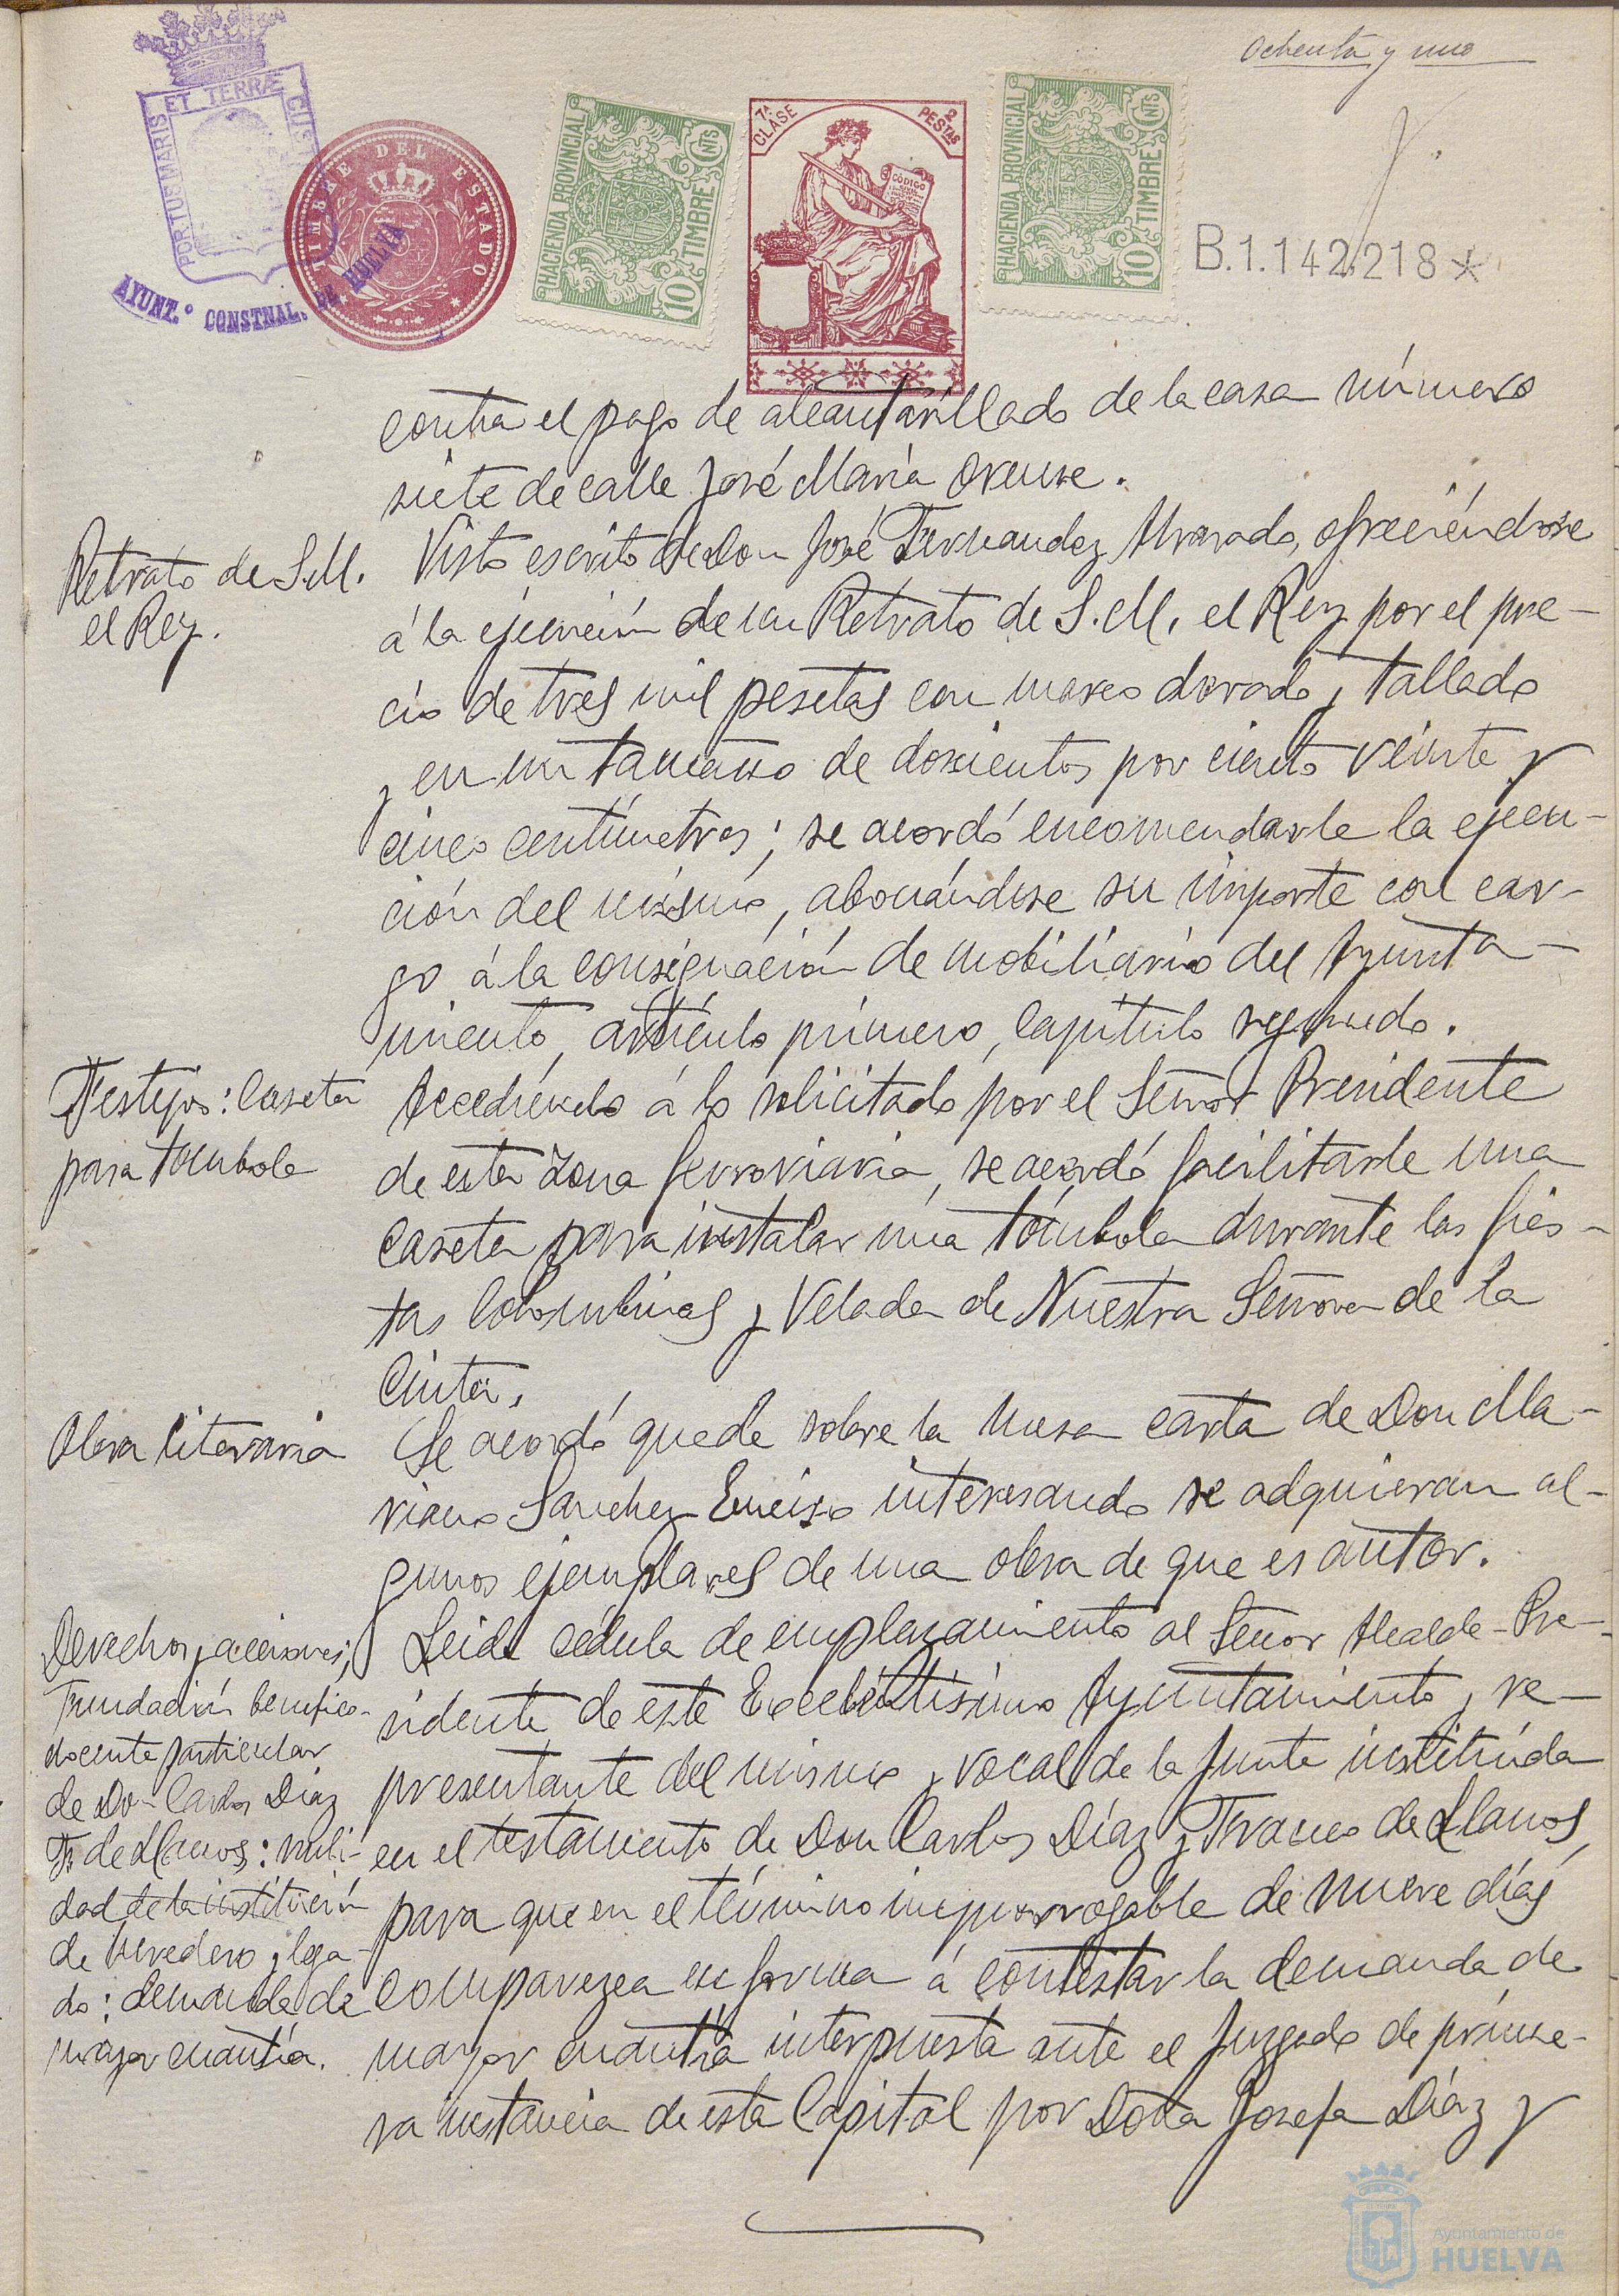 Ochenta y uno
PORTUS MARIS ET TERRÆ CUS
AYUNT.º CONSTNAL. DE HUELVA
TIMBRE DEL ESTADO
HACIENDA PROVINCIAL
10 CNTS
TIMBRE
7ª CLASE
2 PESTAS
CÓDIGO
HACIENDA PROVINCIAL
10 CNTS
TIMBRE
B.1.142,218*
contra el pago de alcantarillado de la casa número
siete de calle José María Orense.
Retrato de S.M.
el Rey.
Visto escrito de Don José Fernandez Alvarado, ofreciéndose
á la ejecución de un Retrato de S.M. el Rey por el pre-
cio de tres mil pesetas con marco dorado y tallado
y en un tamaño de doscientos por ciento veinte y
cinco centímetros; se acordó encomendarle la ejecu-
ción del mismo, abonándose su importe con car-
go á la consignación de mobiliario del Ayunta-
miento, artículo primero, capítulo segundo.
Festejos: Caseta
para tómbola
Accediendo á lo solicitado por el Señor Presidente
de esta Zona ferroviaria, se acordó facilitarle una
caseta para instalar una tómbola durante las fies-
tas Colombinas y Velada de Nuestra Señora de la
Cinta.
Obra literaria
Se acordó quede sobre la mesa carta de Don Ma-
riano Sanchez Enciso interesando se adquieran al-
gunos ejemplares de una obra de que es autor.
Derechos y acciones;
Fundación benefico-
docente particular
de Don Carlos Díaz
F. de Llanos: nuli-
dad de la institución
de heredero y lega-
do: demanda de
mayor cuantía.
Leida cédula de emplazamiento al Señor Alcalde-Pre-
sidente de este Excelentísimo Ayuntamiento y re-
presentante del mismo y vocal de la Junta instituída
en el testamento de Don Carlos Díaz y Franco de Llanos,
para que en el término improrrogable de nueve días
comparezca en forma á contestar la demanda de
mayor cuantía interpuesta ante el Juzgado de prime-
ra instancia de esta Capital por Doña Josefa Díaz y
Ayuntamiento de
HUELVA